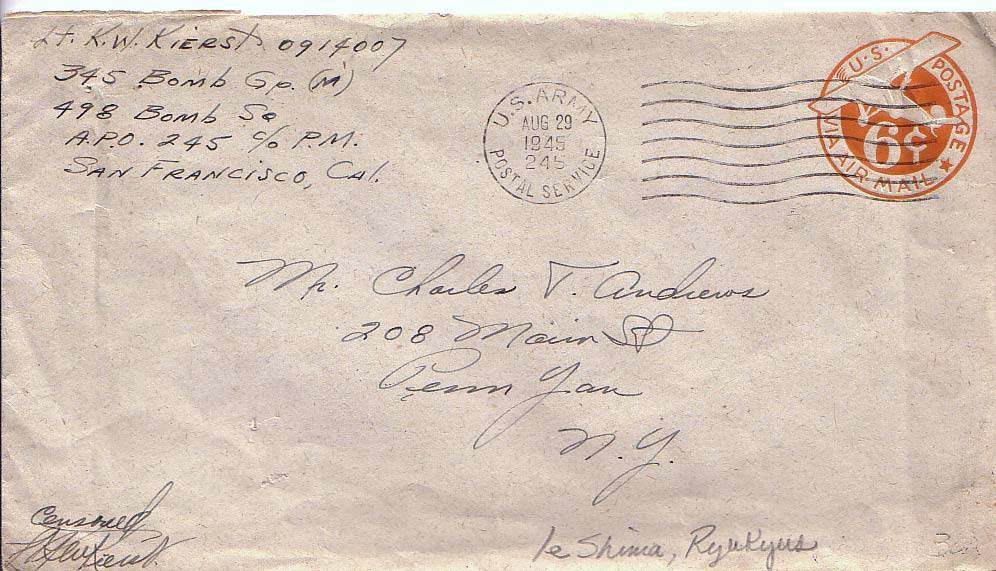 Lt. K.W. Kierst 0914007
345 Bomb Gp. (M)
498 Bomb Sq
A.P.O. 245 c/o P.M.
San Francisco, Cal.
U.S. ARMY
AUG 29
1945
245
POSTAL SERVICE
U.S. POSTAGE
6¢
VIA AIR MAIL
Mr. Charles T. Andrews
208 Main St
Penn Yan
N.Y.
Censored
Ie Shima, Ryukyus